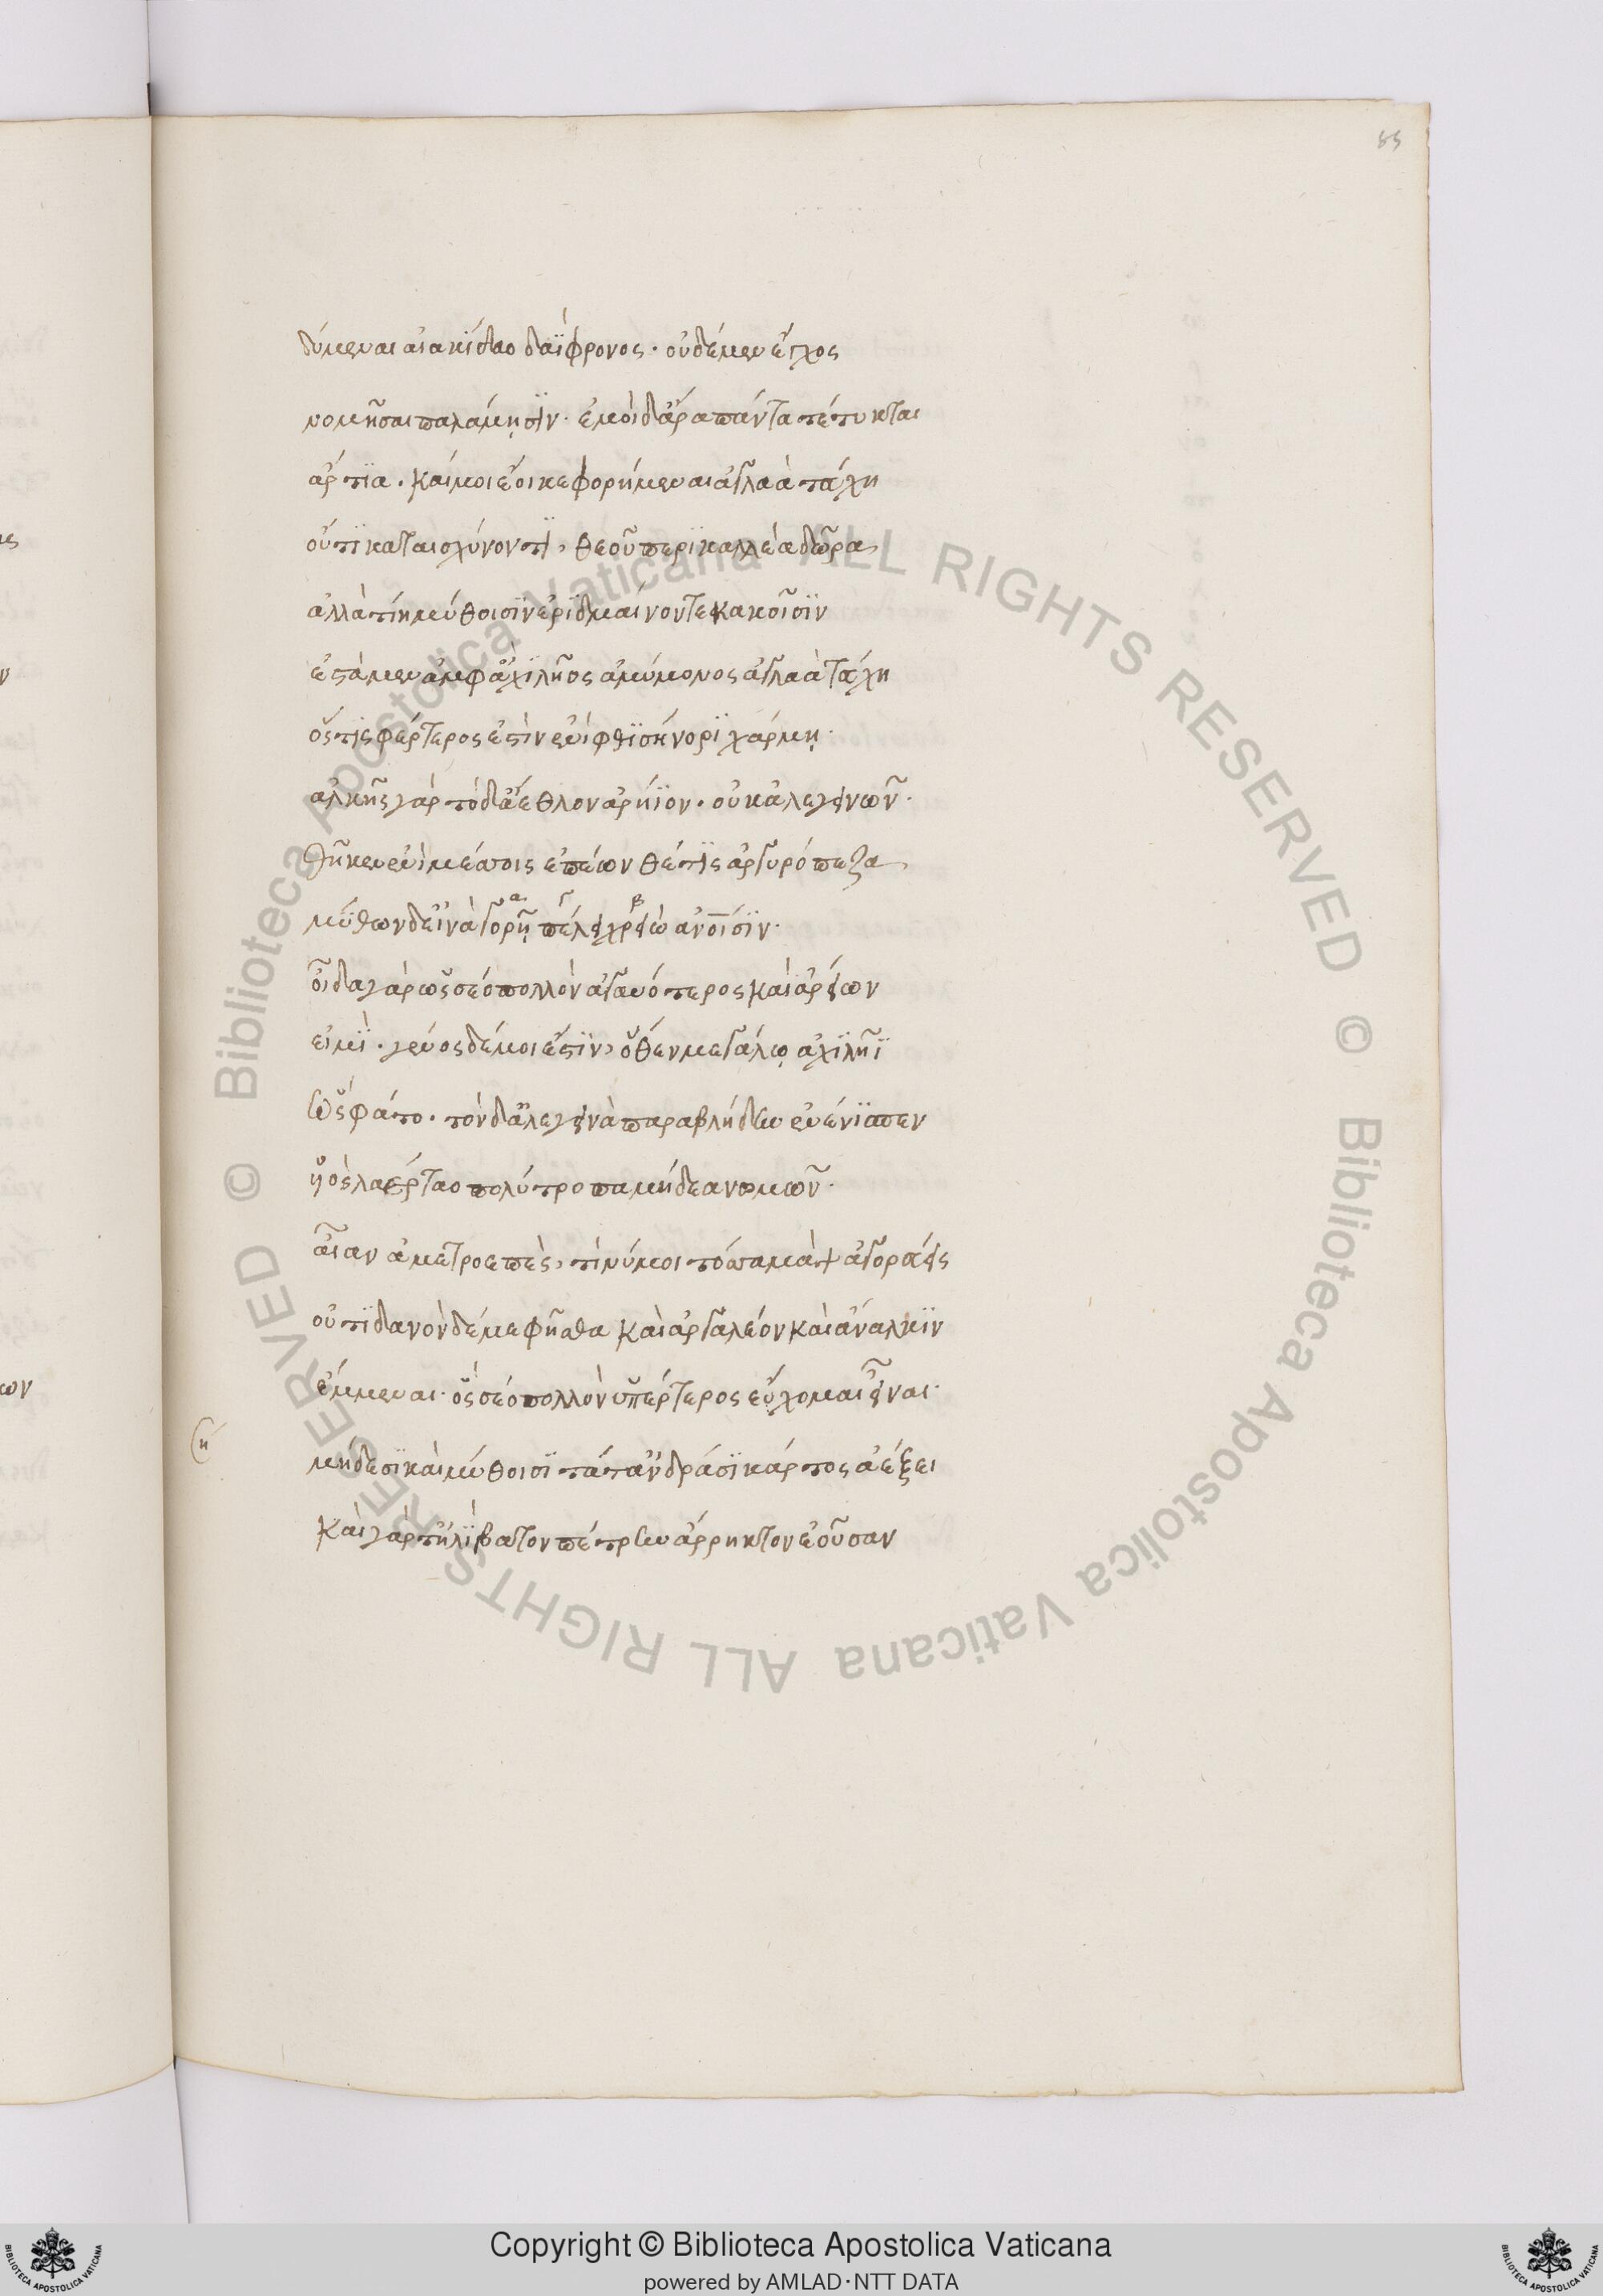 55
δύμεναι αἰακίδαο δαΐφρονος· οὐδέ μεν ἔγχος
νομῆσαι παλάμησϊν· ἐμοὶ δ' ἄρα πάντα τέτυκται
ἄρτια· καί μοι ἔοικε φορήμεναι ἀγλαὰ τεύχη
οὔτι καταισχύνοντϊ, θεοῦ περικαλλέα δῶρα,
ἀλλὰ τίη μύθοισϊν ἐριδμαίνοντε κακοῖσϊν
ἕσταμεν ἀμφ' ἀχιλῆος ἀμύμονος ἀγλαὰ τεύχη
ὅστις φέρτερος ἐστὶν ἐνὶ φθισήνορι χάρμῃ·
ἀλκῆς γὰρ τόδ' ἄεθλον ἀρήϊον· οὐκ ἀλεγεινῶν·
θῆκεν ἐνὶ μέσσοις ἐπέων θέτις ἀργυρόπεζα,
μύθων δ' εἰν ἀγορῇ πέλει χρειὼ ἀνοισίν·
οἶδα γὰρ ὡς σέο πολλὸν ἀγαυότερος καὶ ἀρείων
εἰμϊ· γένος δέ μοι ἐστϊν, ὅθεν μεγάλῳ ἀχιλῆϊ
ὣς φάτο· τὸν δ' ἀλεγεινὰ παραβλήδην ἐνένϊπεν
ὑὸς λαέρταο πολύτροπα μήδεα νωμῶν·
αἶαν ἀμετροεπὲς, τί νύ μοι τόσσα μὰψ ἀγοράεις
οὐτιδανὸν δέ με φῆσθα καὶ ἀργαλέον καὶ ἄναλκϊν
ἔμμεναι· ὃς σέο πολλὸν ὑπέρτερος εὔχομαι εἶναι·
μήδεσϊ καὶ μύθοισϊ τά τ' ἀνδράσϊ κάρτος ἀέξει
καὶ γὰρ τ' ἠλίβατον πέτρην ἄρρηκτον ἐοῦσαν
Copyright © Biblioteca Apostolica Vaticana
powered by AMLAD·NTT DATA